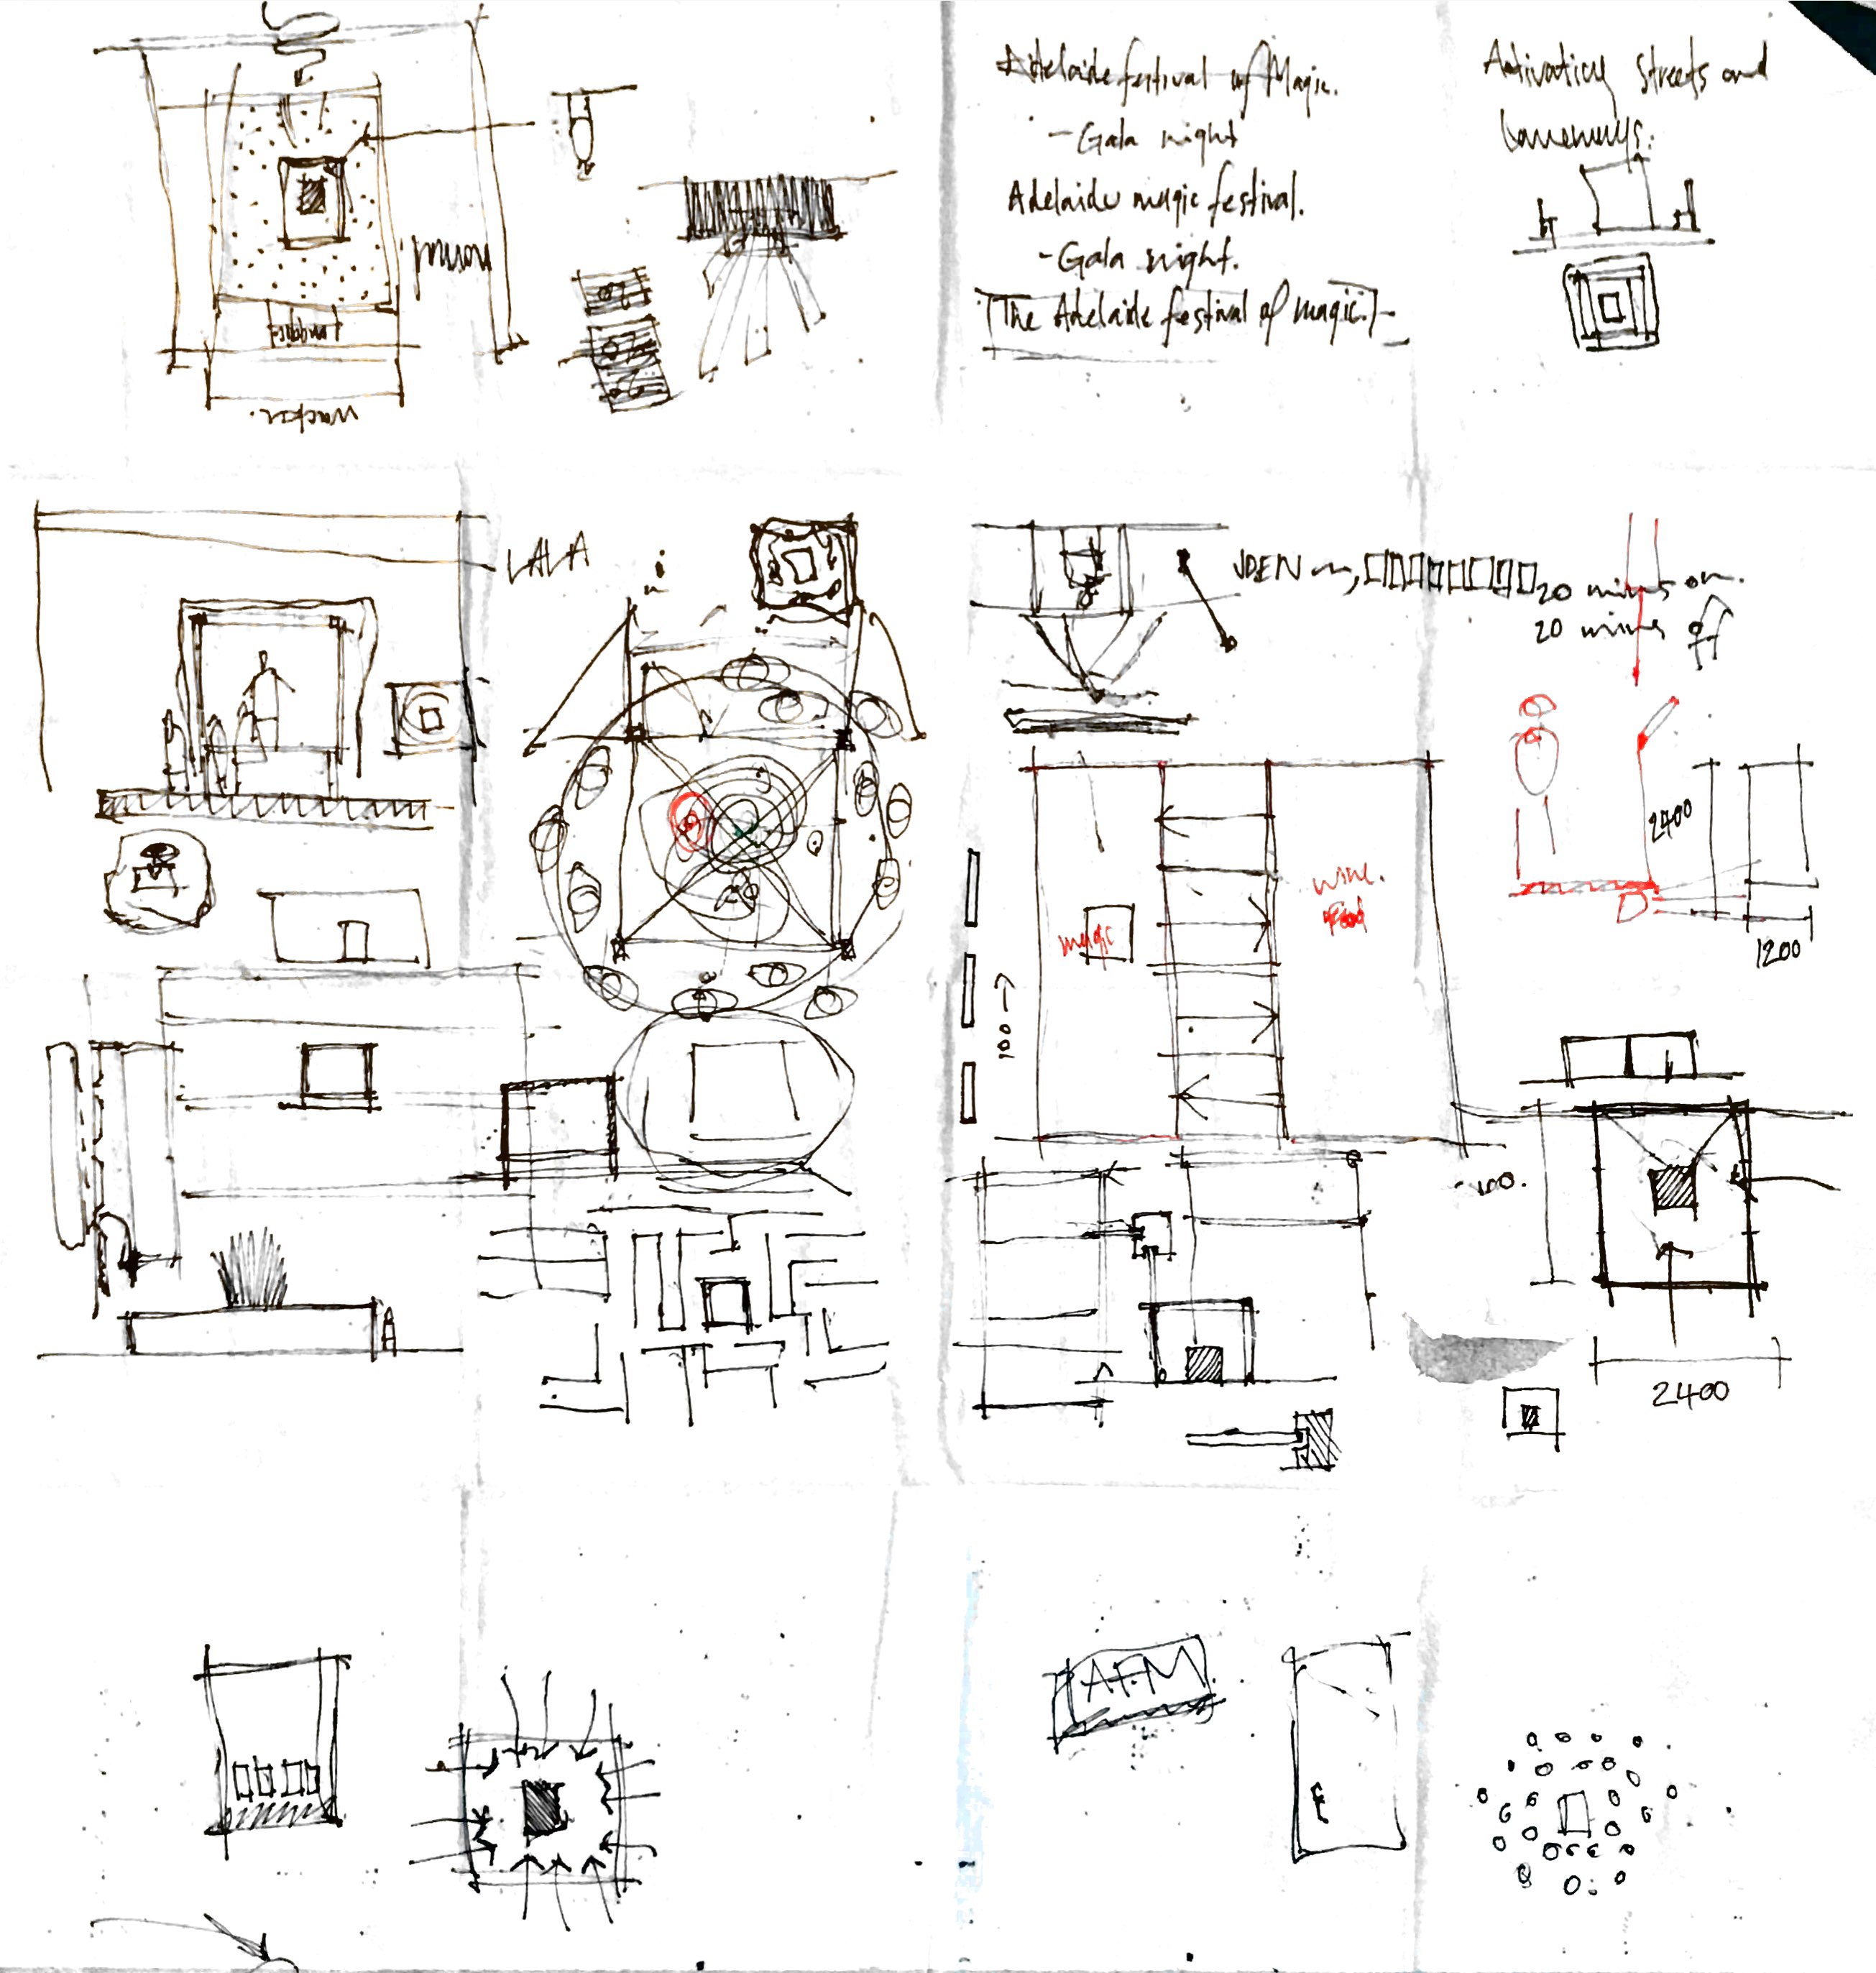 Adelaide festival of Magic.
- Gala night
Adelaide magic festival.
- Gala night.
[The Adelaide festival of magic.] -
Activating streets and
laneways.
LALA
20 mins on.
20 mins off
2400
1200
magic
wine.
food
100 →
100.
2400
AFM